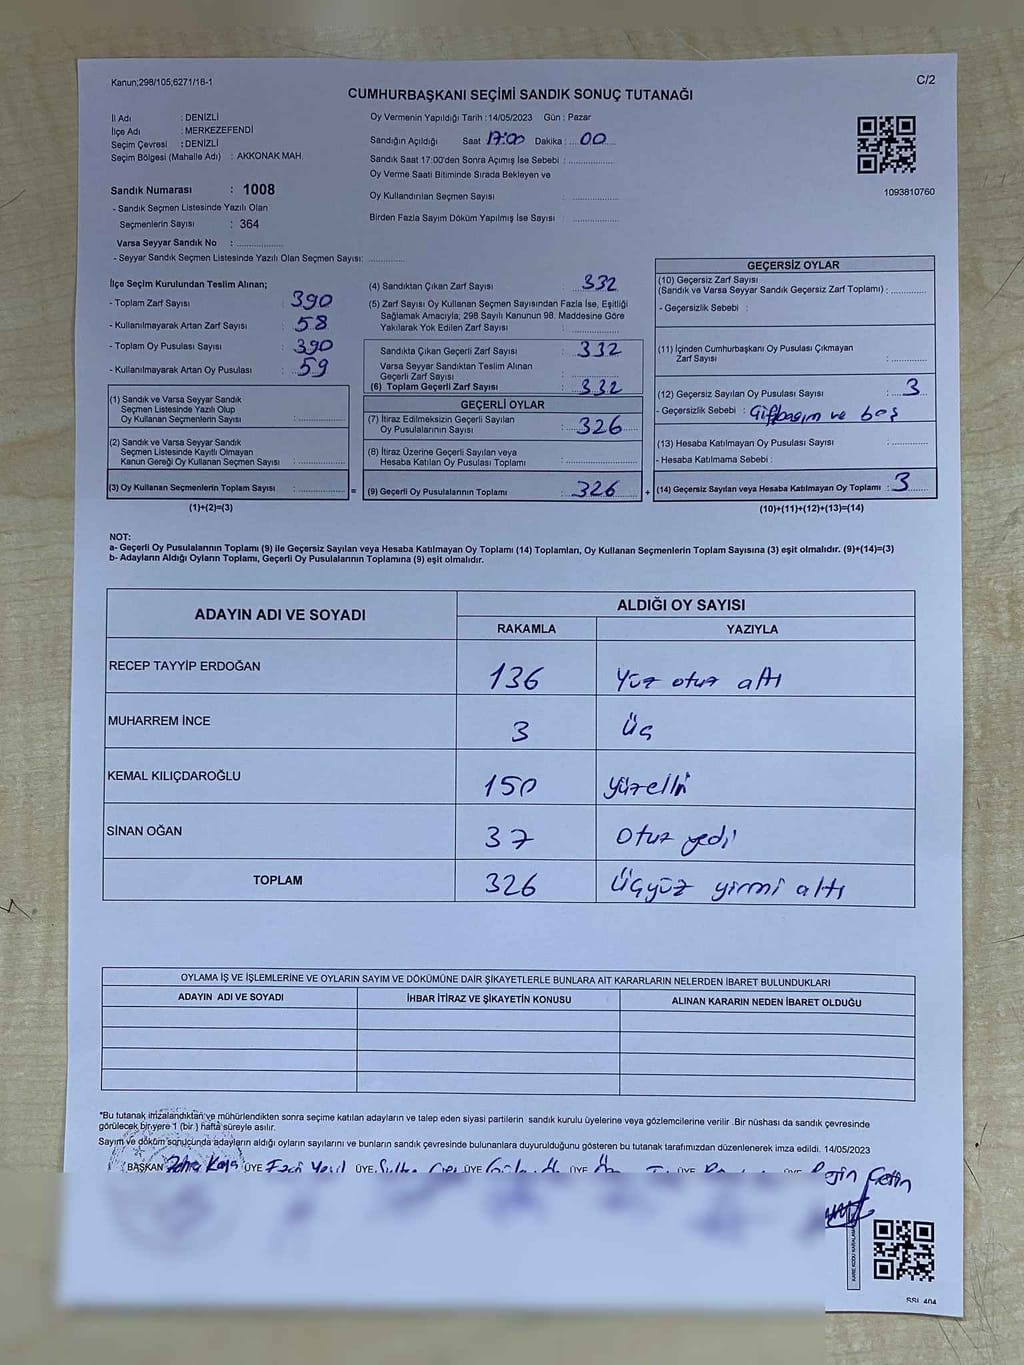 Kanun;298/105;6271/18-1
C/2
CUMHURBAŞKANI SEÇİMİ SANDIK SONUÇ TUTANAĞI
İl Adı : DENİZLİ
İlçe Adı : MERKEZEFENDİ
Seçim Çevresi : DENİZLİ
Seçim Bölgesi (Mahalle Adı) : AKKONAK MAH.
Sandık Numarası : 1008
- Sandık Seçmen Listesinde Yazılı Olan
Seçmenlerin Sayısı : 364
Varsa Seyyar Sandık No : ...............
- Seyyar Sandık Seçmen Listesinde Yazılı Olan Seçmen Sayısı: ............
Oy Vermenin Yapıldığı Tarih : 14/05/2023 Gün : Pazar
Sandığın Açıldığı Saat 17:00 Dakika : 00
Sandık Saat 17:00'den Sonra Açımış İse Sebebi : ...............
Oy Verme Saati Bitiminde Sırada Bekleyen ve
Oy Kullandırılan Seçmen Sayısı : ...............
Birden Fazla Sayım Döküm Yapılmış İse Sayısı : ...............
1093810760
İlçe Seçim Kurulundan Teslim Alınan;
- Toplam Zarf Sayısı : 390
- Kullanılmayarak Artan Zarf Sayısı : 58
- Toplam Oy Pusulası Sayısı : 390
- Kullanılmayarak Artan Oy Pusulası : 59
(1) Sandık ve Varsa Seyyar Sandık
Seçmen Listesinde Yazılı Olup
Oy Kullanan Seçmenlerin Sayısı : ...............
(2) Sandık ve Varsa Seyyar Sandık
Seçmen Listesinde Kayıtlı Olmayan
Kanun Gereği Oy Kullanan Seçmen Sayısı : ...............
(3) Oy Kullanan Seçmenlerin Toplam Sayısı : ............... =
(1)+(2)=(3)
(4) Sandıktan Çıkan Zarf Sayısı : 332
(5) Zarf Sayısı Oy Kullanan Seçmen Sayısından Fazla İse, Eşitliği
Sağlamak Amacıyla; 298 Sayılı Kanunun 98. Maddesine Göre
Yakılarak Yok Edilen Zarf Sayısı : ...............
Sandıkta Çıkan Geçerli Zarf Sayısı : 332
Varsa Seyyar Sandıktan Teslim Alınan
Geçerli Zarf Sayısı : ...............
(6) Toplam Geçerli Zarf Sayısı : 332
GEÇERLİ OYLAR
(7) İtiraz Edilmeksizin Geçerli Sayılan
Oy Pusulalarının Sayısı : 326
(8) İtiraz Üzerine Geçerli Sayılan veya
Hesaba Katılan Oy Pusulası Toplamı : ...............
(9) Geçerli Oy Pusulalarının Toplamı : 326 +
GEÇERSİZ OYLAR
(10) Geçersiz Zarf Sayısı
(Sandık ve Varsa Seyyar Sandık Geçersiz Zarf Toplamı) : ............
- Geçersizlik Sebebi :
(11) İçinden Cumhurbaşkanı Oy Pusulası Çıkmayan
Zarf Sayısı : ............
(12) Geçersiz Sayılan Oy Pusulası Sayısı : 3
- Geçersizlik Sebebi : ve boş
(13) Hesaba Katılmayan Oy Pusulası Sayısı : ............
- Hesaba Katılmama Sebebi :
(14) Geçersiz Sayılan veya Hesaba Katılmayan Oy Toplamı : 3
(10)+(11)+(12)+(13)=(14)
NOT:
a- Geçerli Oy Pusulalarının Toplamı (9) ile Geçersiz Sayılan veya Hesaba Katılmayan Oy Toplamı (14) Toplamları, Oy Kullanan Seçmenlerin Toplam Sayısına (3) eşit olmalıdır. (9)+(14)=(3)
b- Adayların Aldığı Oyların Toplamı, Geçerli Oy Pusulalarının Toplamına (9) eşit olmalıdır.
ADAYIN ADI VE SOYADI ALDIĞI OY SAYISI
RAKAMLA YAZIYLA
RECEP TAYYİP ERDOĞAN 136 Yüz otuz altı
MUHARREM İNCE 3 Üç
KEMAL KILIÇDAROĞLU 150 yüzelli
SİNAN OĞAN 37 Otuz yedi
TOPLAM 326 Üçyüz yirmi altı
OYLAMA İŞ VE İŞLEMLERİNE VE OYLARIN SAYIM VE DÖKÜMÜNE DAİR ŞİKAYETLERLE BUNLARA AİT KARARLARIN NELERDEN İBARET BULUNDUKLARI
ADAYIN ADI VE SOYADI İHBAR İTİRAZ VE ŞİKAYETİN KONUSU ALINAN KARARIN NEDEN İBARET OLDUĞU
*Bu tutanak imzalandıktan ve mühürlendikten sonra seçime katılan adayların ve talep eden siyasi partilerin sandık kurulu üyelerine veya gözlemcilerine verilir .Bir nüshası da sandık çevresinde
görülecek bir yere 1 (bir ) hafta süreyle asılır.
Sayım ve döküm sonucunda adayların aldığı oyların sayılarını ve bunların sandık çevresinde bulunanlara duyurulduğunu gösteren bu tutanak tarafımızdan düzenlenerek imza edildi. 14/05/2023
BAŞKAN ÜYE ÜYE ÜYE ÜYE ÜYE ÜYE